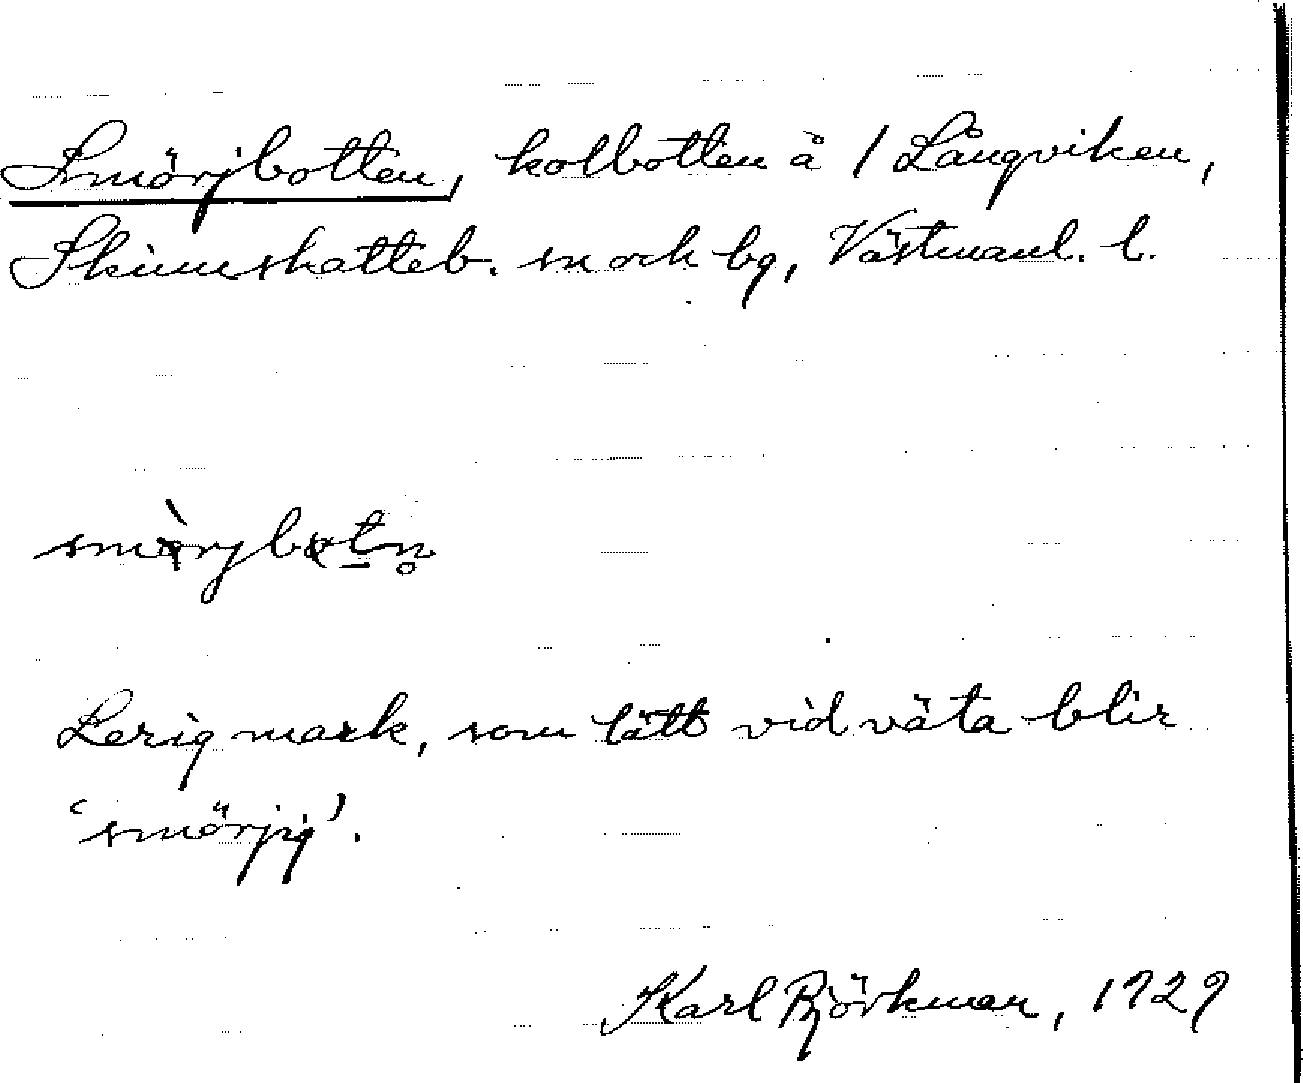 Smörjbotten, kolbotten å / Långviken,
Skinnskatteb. sn och bg, Västmanl. l.
smörjbotn
Lerig mark, som lätt vid väta blir
'smörjig'.
Karl Björkman, 1929